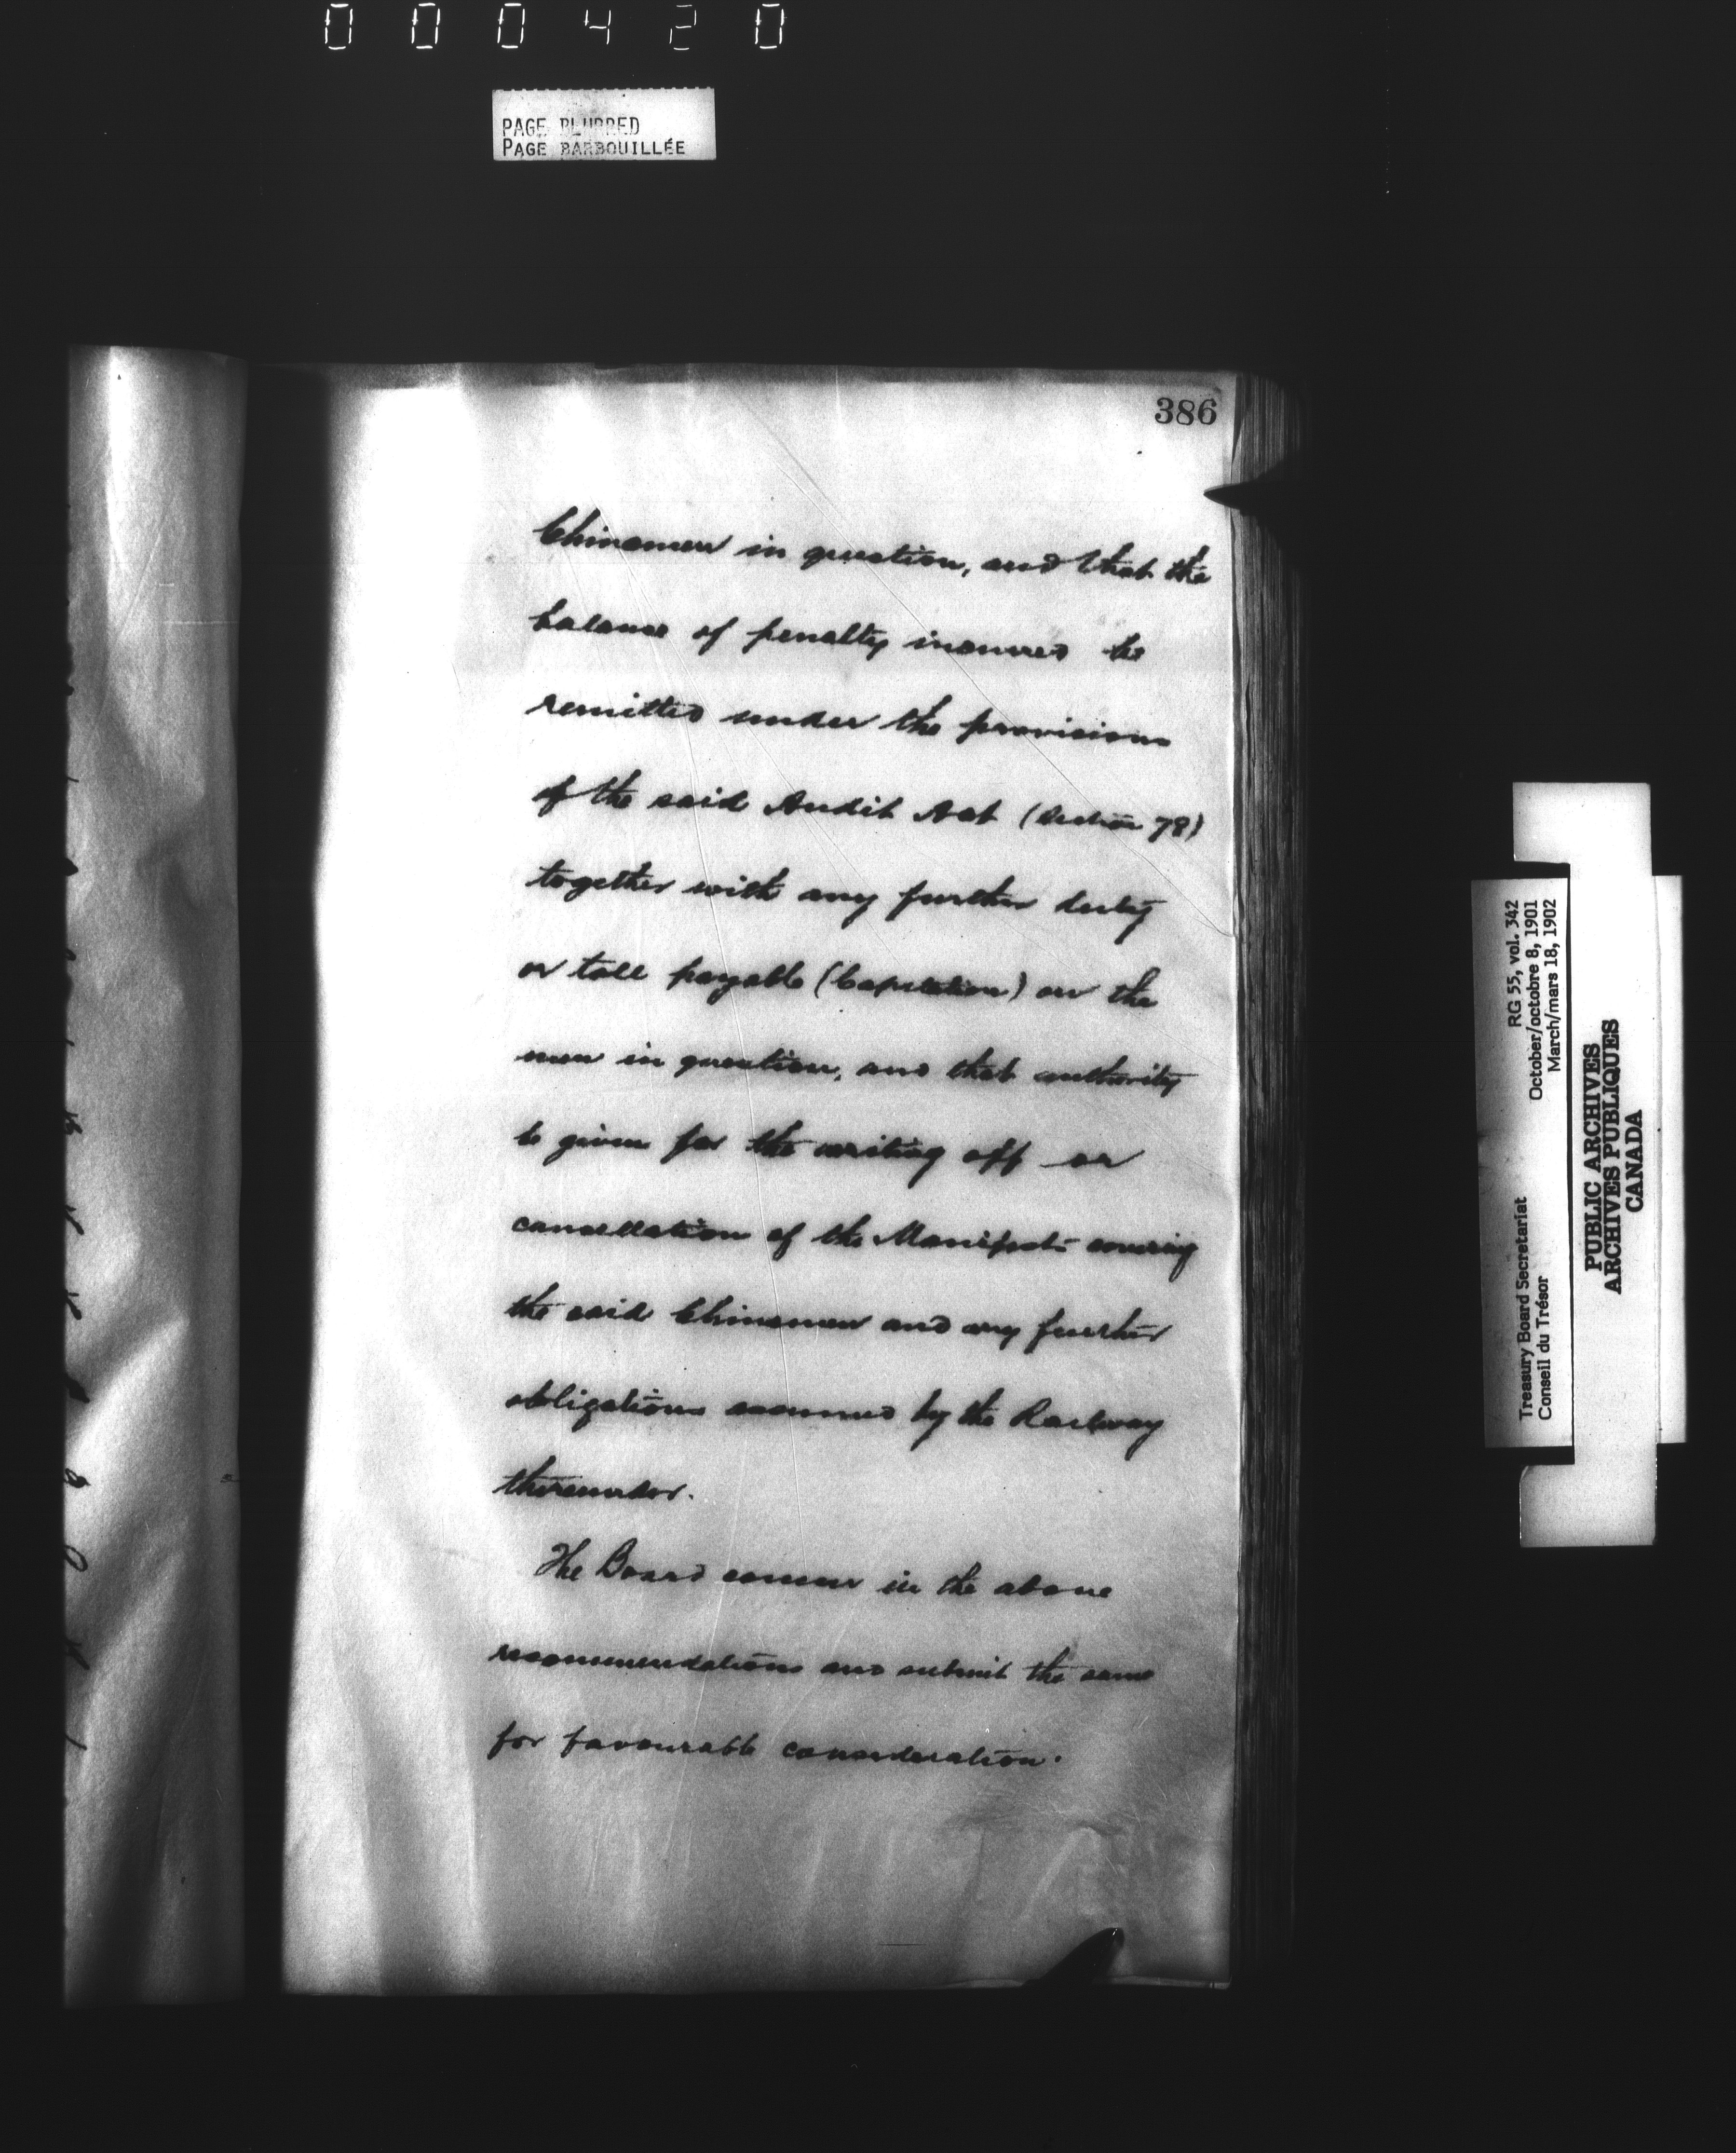 000420
PAGE BLURRED
PAGE BARBOUILLÉE
386
Chinamen in question, and that the
balance of penalty incurred be
remitted under the provisions
of the said Audit Act (Section 78)
together with any further duty
or toll payable (Capitation) on the
men in question, and that authority
be given for the writing off or
cancellation of the Manifests covering
the said Chinamen and any further
obligations assumed by the Railway
thereunder.
The Board concur in the above
recommendations and submit the same
for favourable consideration.
Treasury Board Secretariat RG 55, vol. 342
Conseil du Trésor October/octobre 8, 1901
March/mars 18, 1902
PUBLIC ARCHIVES
ARCHIVES PUBLIQUES
CANADA